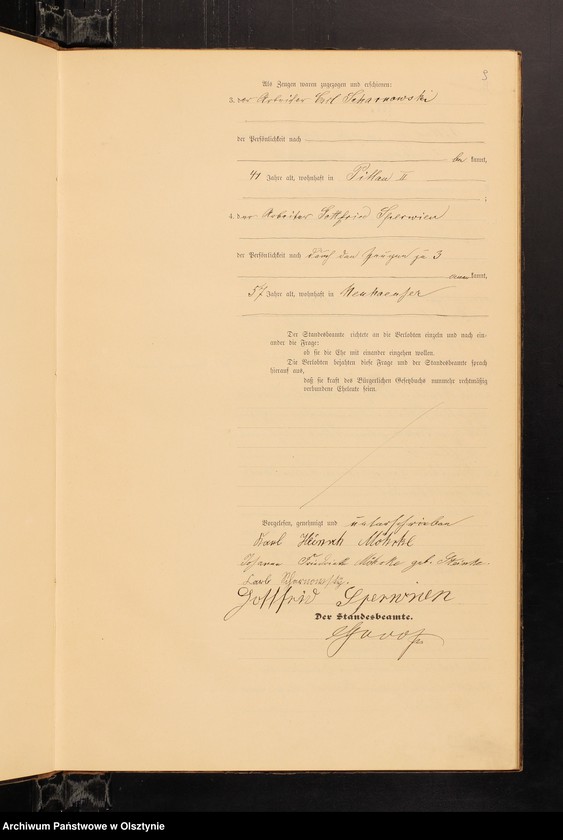 3
Als Zeugen waren zugezogen und erschienen:
3. der Arbeiter Carl Scharnowski
der Persönlichkeit nach
be kannt,
41 Jahre alt, wohnhaft in Pillau II
4. der Arbeiter Gottfried Sperwien
der Persönlichkeit nach durch den Zeugen zu 3
aner kannt,
57 Jahre alt, wohnhaft in Neuhaeuser
Der Standesbeamte richtete an die Verlobten einzeln und nach ein-
ander die Frage:
ob sie die Ehe mit einander eingehen wollen.
Die Verlobten bejahten diese Frage und der Standesbeamte sprach
hierauf aus,
daß sie kraft des Bürgerlichen Gesetzbuchs nunmehr rechtmäßig
verbundene Eheleute seien.
Vorgelesen, genehmigt und unterschrieben
Karl Heinrich
geb.
Karl
Gottfrid Sperwien
Der Standesbeamte.
Archiwum Państwowe w Olsztynie